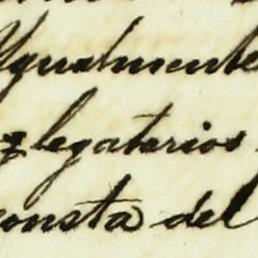 Ygualmente
legatarios
consta del